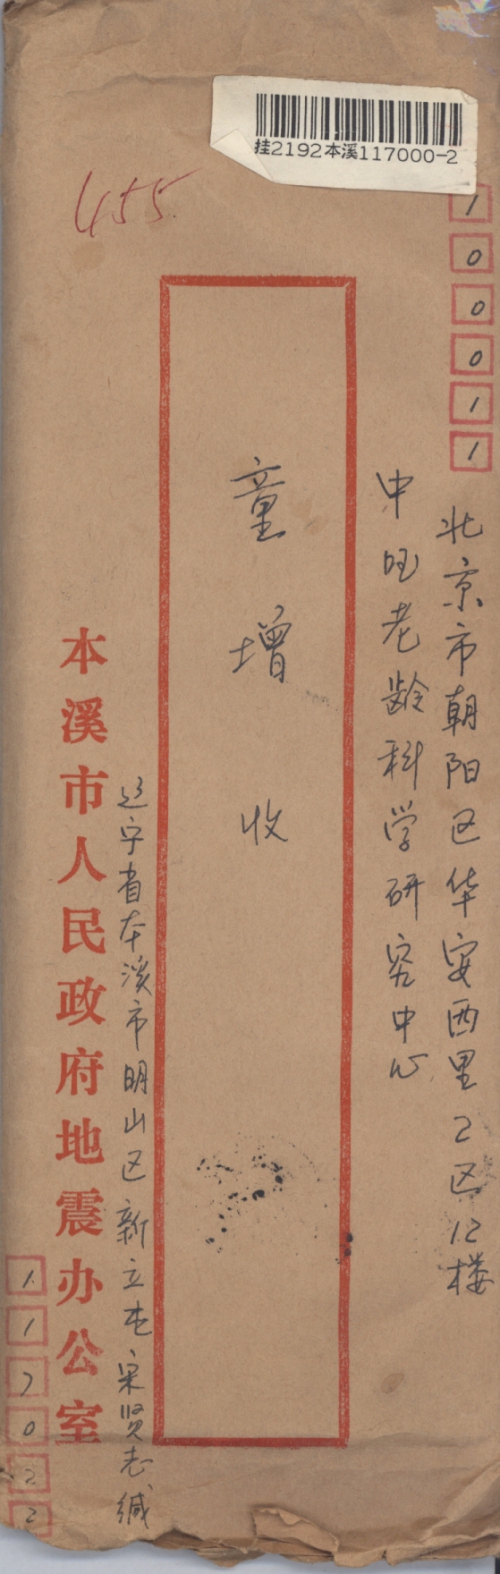 挂2192本溪117000-2
455
100011
北京市朝阳区华安西里2区12楼
中国老龄科学研究中心
童增
收
本溪市人民政府地震办公室
辽宁省本溪市明山区新立屯宋贤志缄
117022